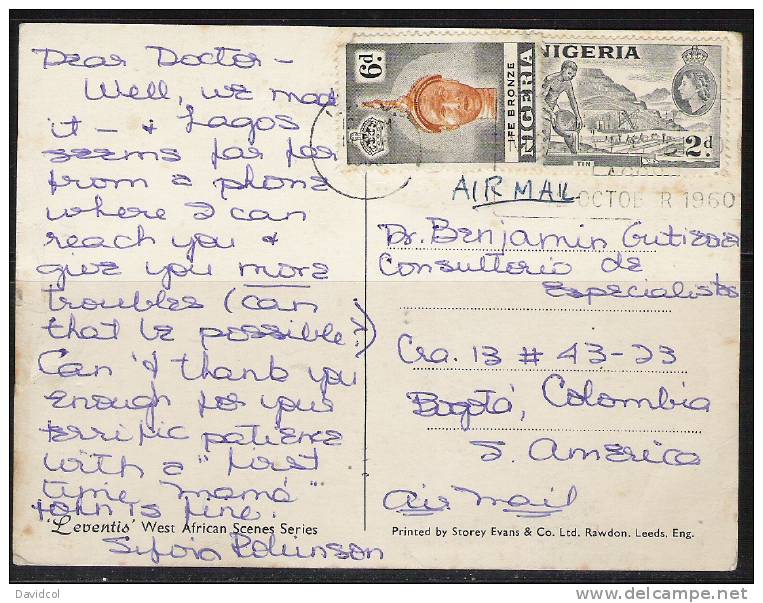 Dear Doctor -
Well, we made
it - & Lagos
seems far far
from a phone
where I can
reach you &
give you more
troubles (can
that be possible?)
Can't thank you
enough for your
terrific patience
with a "first
time mamá"
John is fine.
Sylvia Robinson
'Leventis' West African Scenes Series
6d
IFE BRONZE
NIGERIA
NIGERIA
TIN
2d.
AIR MAIL
OCTOBER 1960
Dr. Benjamin Gutierrez
Consultorio de
Especialistas
Cra. 13 # 43-23
Bogotá, Colombia
S. America
Air Mail
Printed by Storey Evans & Co. Ltd. Rawdon. Leeds, Eng.
Davidcol
delcampe.net